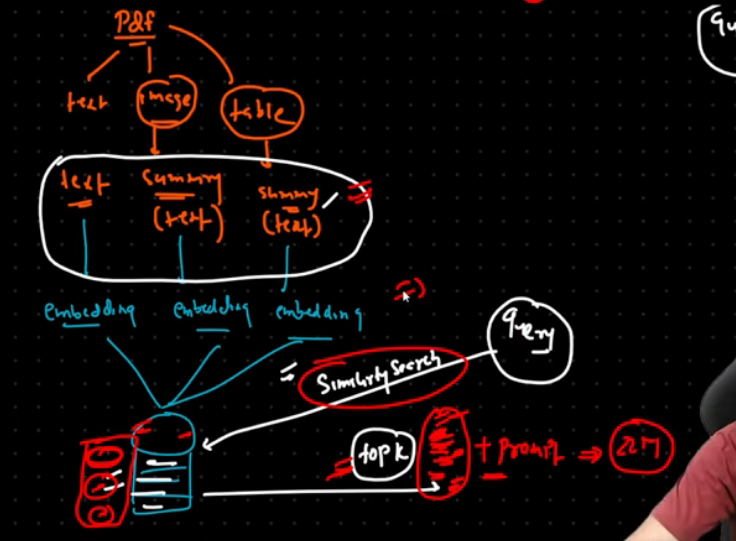 Pdf
qu
text image table
text summry summry
(text) (text)
embedding embedding embedding
query
Similarity Search
top k + prompt ⇒ LLM